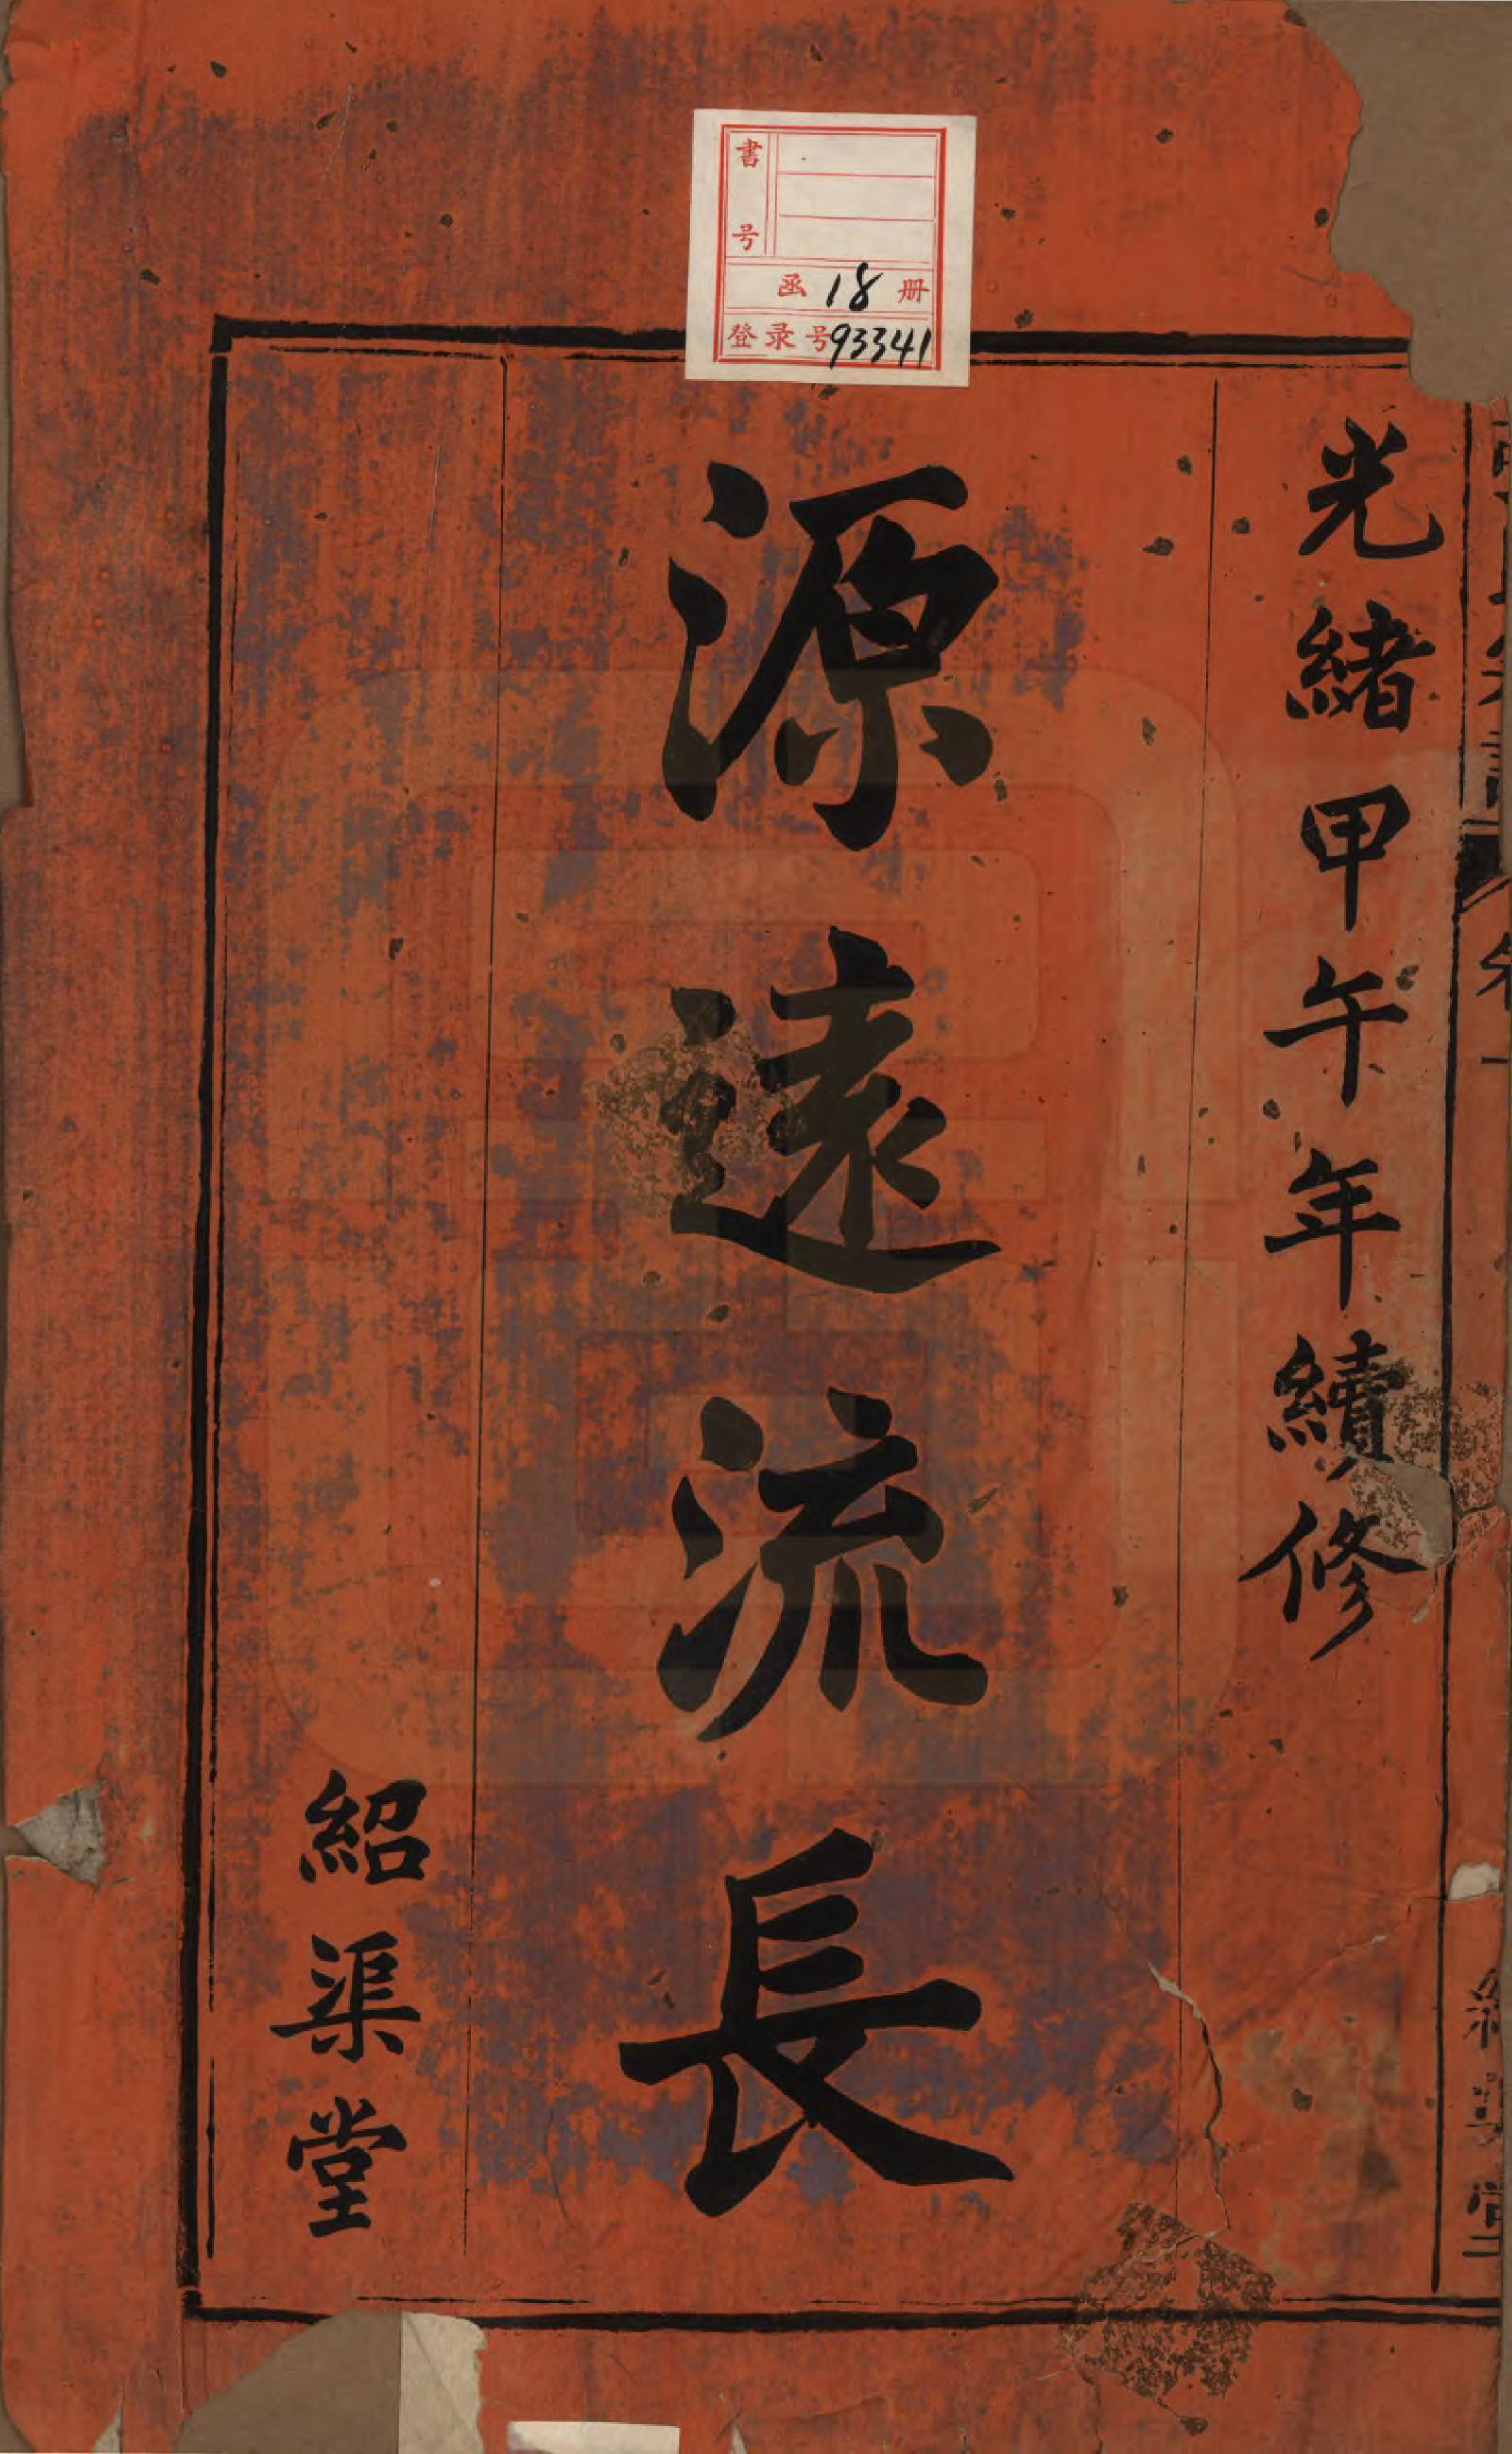 光緒甲午年續修
源遠流長
紹渠堂
書号
函 18 册
登录号93341